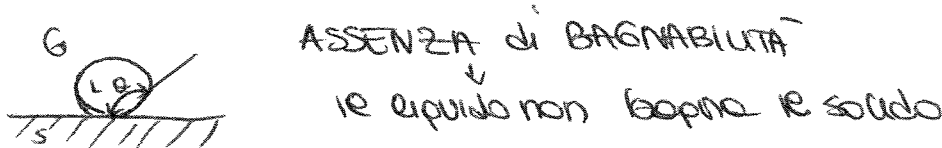 G
ASSENZA di BAGNABILITÀ
L θ
il liquido non bagna il solido
S